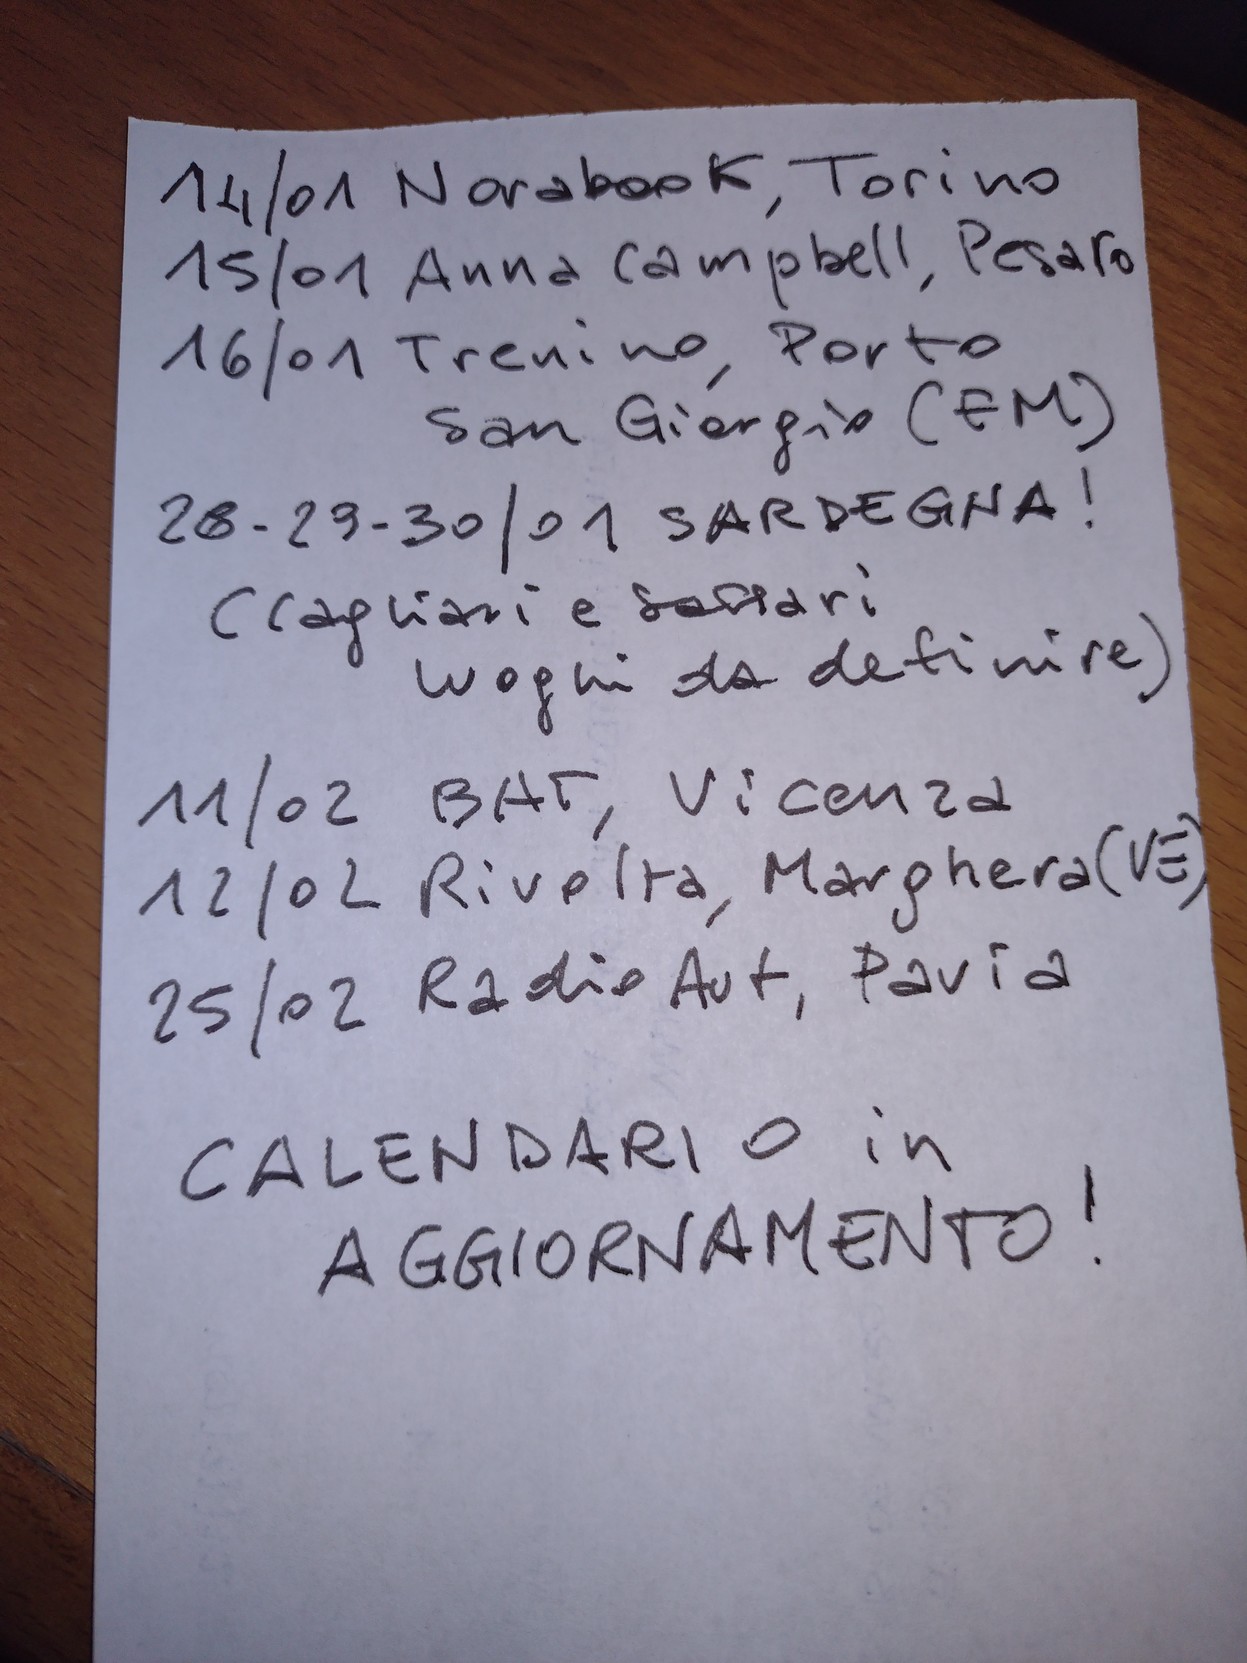 14/01 Norabook, Torino
15/01 Anna Campbell, Pesaro
16/01 Trenino, Porto
San Giorgio (FM)
28-29-30/01 SARDEGNA!
(Cagliari e Sassari
luoghi da definire)
11/02 BAT, Vicenza
12/02 Rivolta, Marghera (VE)
25/02 Radio Aut, Pavia
CALENDARIO in
AGGIORNAMENTO!